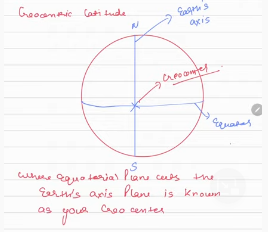 Geocentric Latitude
N
Earth's
axis
Geocenter
Equator
S
Where equatorial Plane cuts the
Earth's axis Plane is known
as your Geocenter